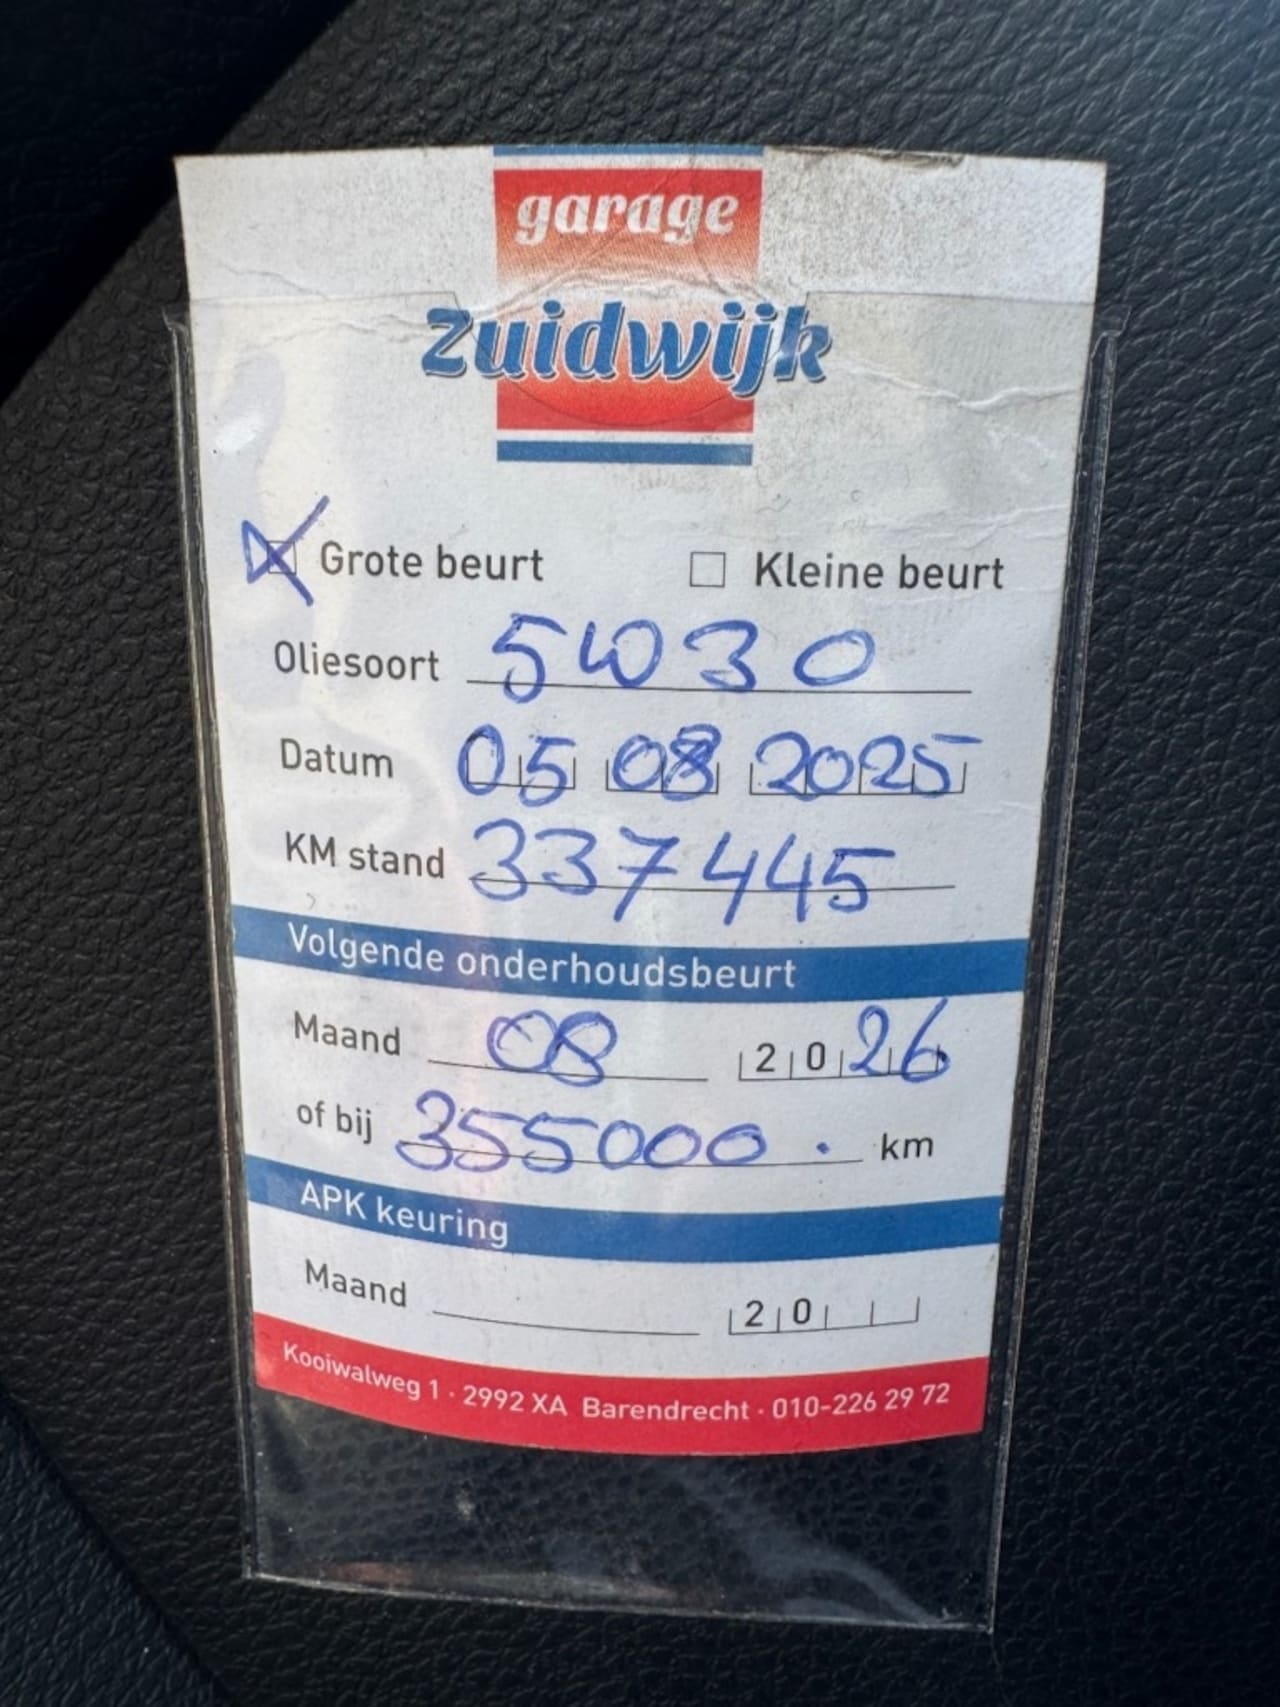 garage
Zuidwijk
Grote beurt Kleine beurt
Oliesoort 5W30
Datum 05 08 2025
KM stand 337445
Volgende onderhoudsbeurt
Maand 08 2026
of bij 355000. km
APK keuring
Maand 20
Kooiwalweg 1 · 2992 XA Barendrecht · 010-226 29 72